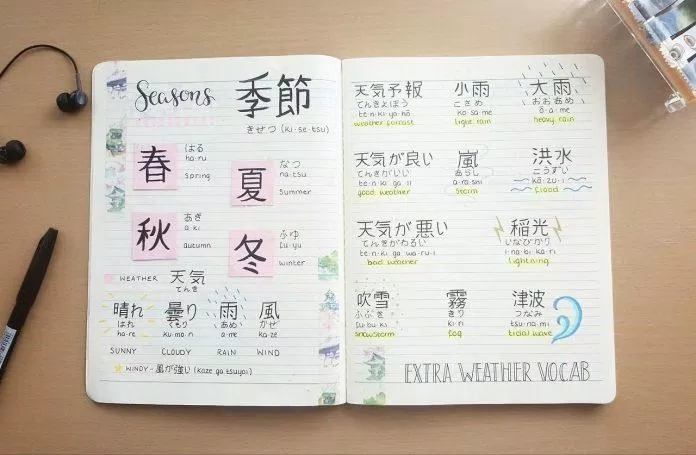 Seasons 季節
きせつ (ki·se·tsu)
春
はる
ha·ru
spring
夏
なつ
na·tsu
Summer
秋
あき
a·ki
autumn
冬
ふゆ
fu·yu
winter
WEATHER 天気
てんき
晴れ 曇り 雨 風
はれ くもり あめ かぜ
ha·re ku·mo·ri a·me ka·ze
SUNNY CLOUDY RAIN WIND
WINDY - 風が強い (kaze ga tsuyoi)
天気予報 小雨 大雨
てんきよほう こさめ おおあめ
te·n·ki·yo·hō ko·sa·me ō·a·me
weather forcast light rain heavy rain
天気が良い 嵐 洪水
てんきがいい あらし こうずい
te·n·ki ga·ii a·ra·shi kō·zu·i
good weather storm flood
天気が悪い 稲光
てんきがわるい いなびかり
te·n·ki ga·wa·ru·i i·na·bi·ka·ri
bad weather lightning
吹雪 霧 津波
ふぶき きり つなみ
fu·bu·ki ki·ri tsu·na·mi
snowstorm fog tidal wave
EXTRA WEATHER VOCAB